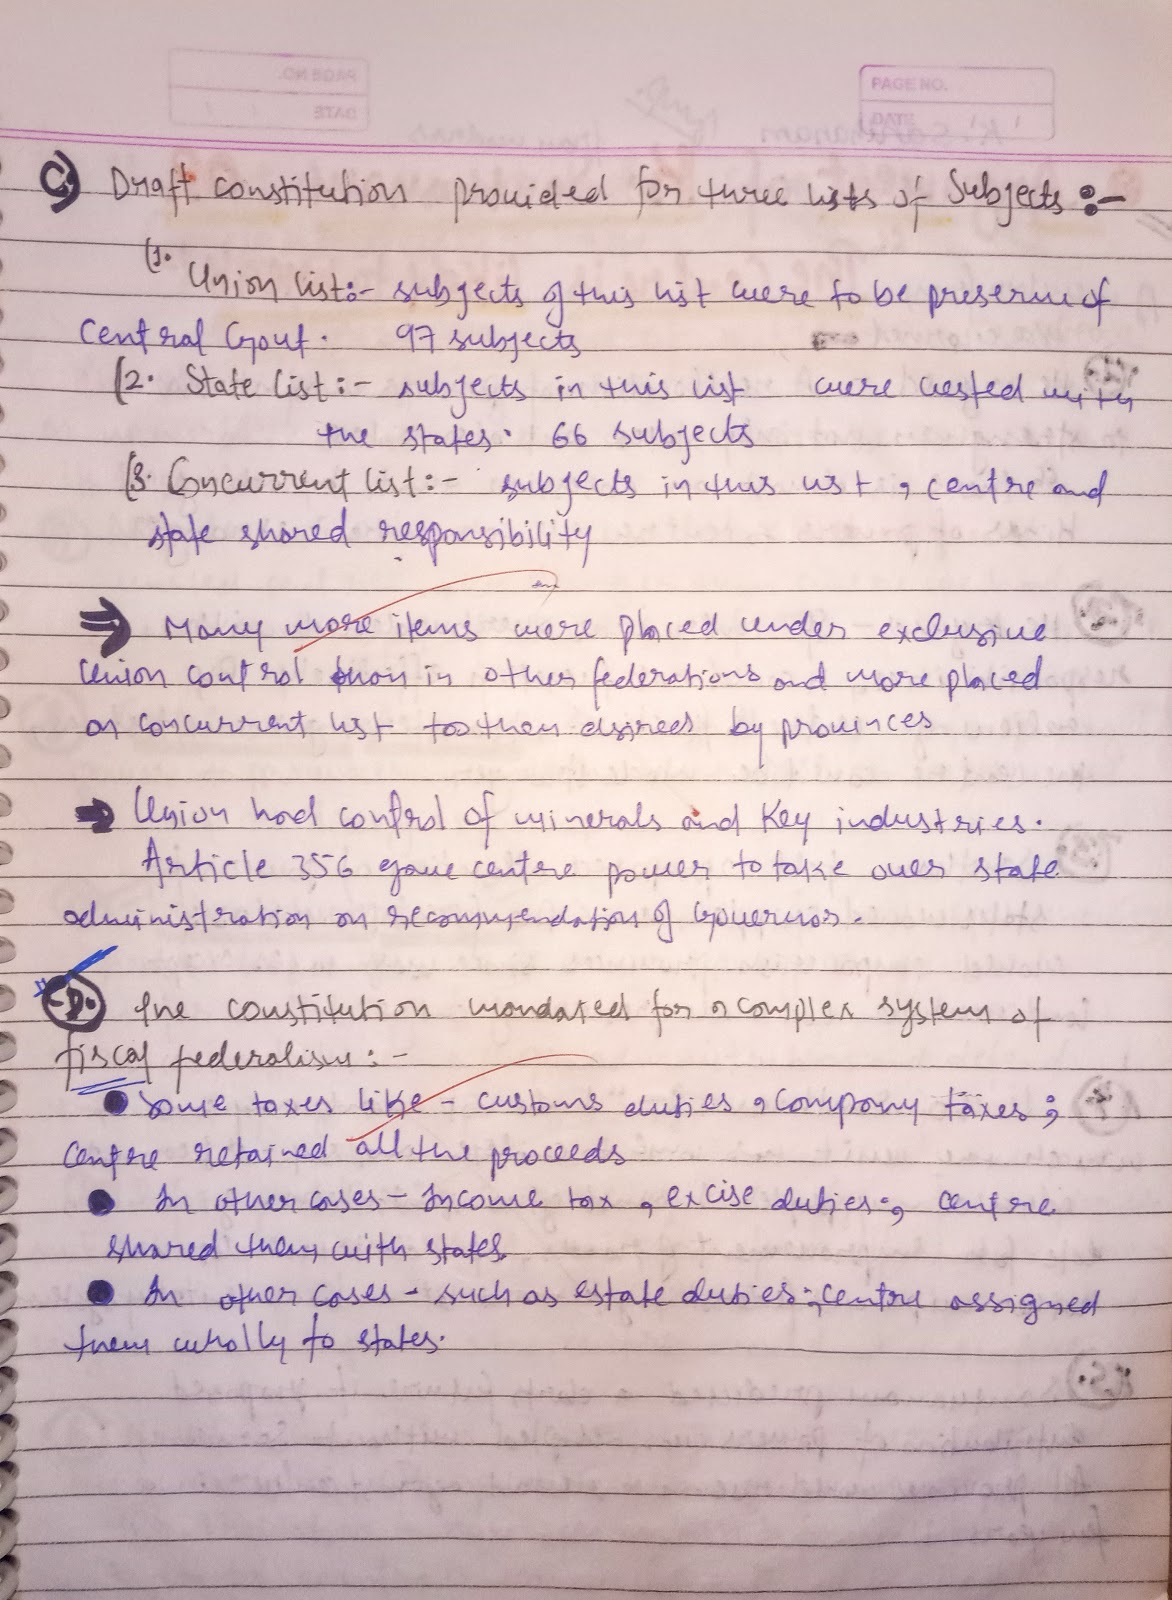 PAGE NO.
DATE
C) Draft constitution provided for three lists of Subjects :-
(1. Union list:- subjects of this list were to be preserve of
Central Govt. 97 subjects
(2. State list :- subjects in this list were vested with
the states. 66 subjects
(3. Concurrent list :- subjects in this list, centre and
state shared responsibility
⇒ Many more items were placed under exclusive
Union control than in other federations and more placed
on concurrent list too than desired by provinces
→ Union had control of minerals and key industries.
Article 356 gave centre power to take over state
administration on recommendation of Governor.
D. The constitution mandated for a complex system of
fiscal federalism :-
● Some taxes like - customs duties, company taxes;
Centre retained all the proceeds
● In other cases - Income tax, excise duties;, centre
shared them with states
● In other cases - such as estate duties:, centre assigned
them wholly to states.